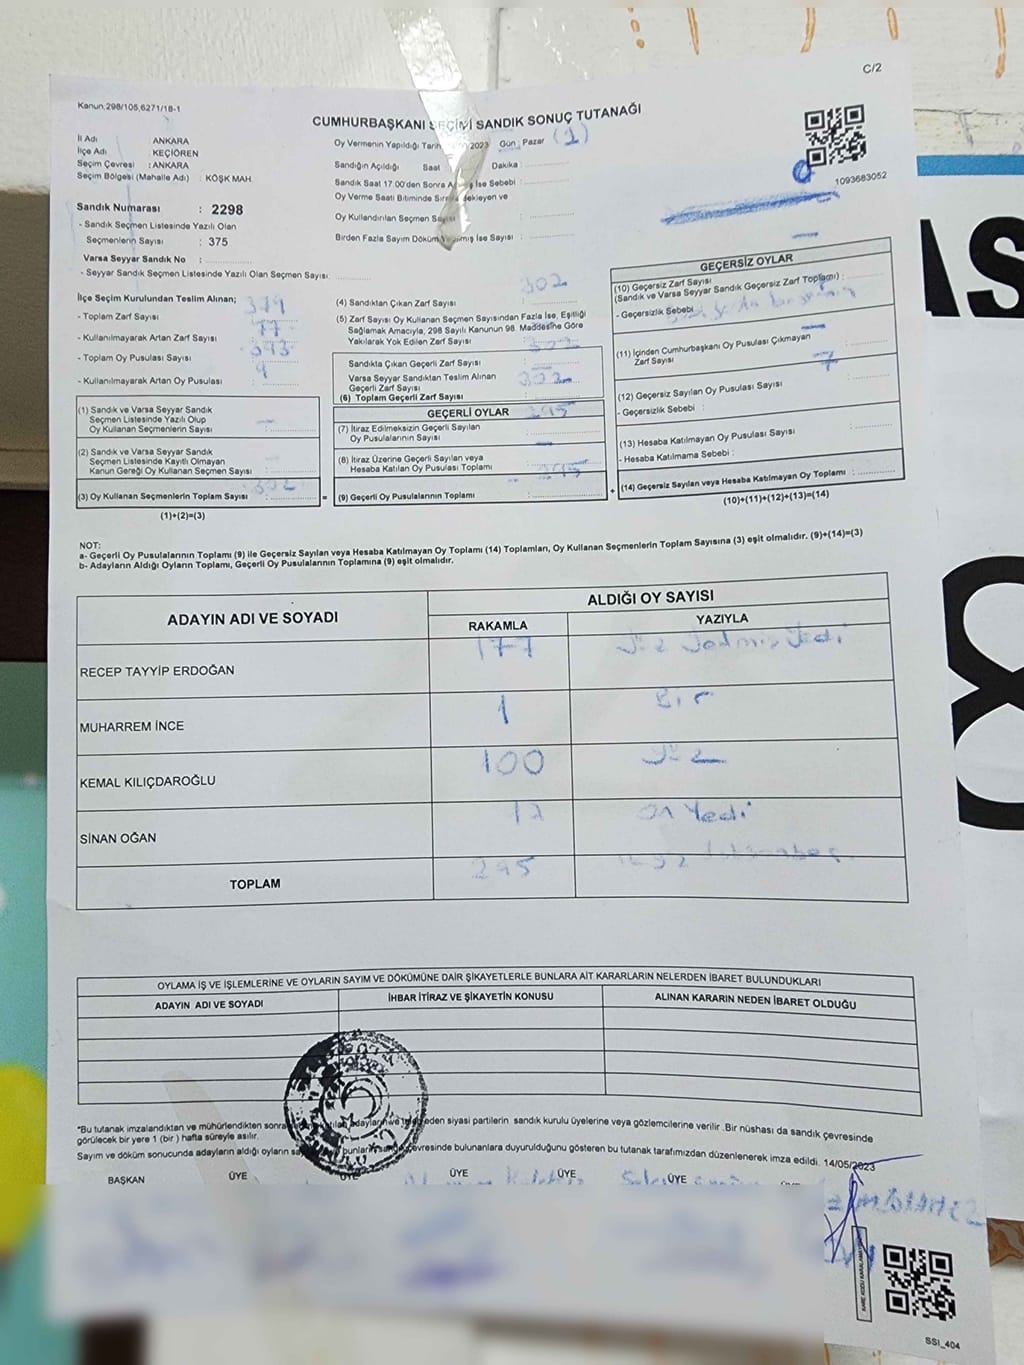 C/2
Kanun;298/105,6271/18-1
CUMHURBAŞKANI SEÇİMİ SANDIK SONUÇ TUTANAĞI
İl Adı : ANKARA
İlçe Adı : KEÇİÖREN
Seçim Çevresi : ANKARA
Seçim Bölgesi (Mahalle Adı) : KÖŞK MAH.
Sandık Numarası : 2298
- Sandık Seçmen Listesinde Yazılı Olan
Seçmenlerin Sayısı : 375
Varsa Seyyar Sandık No :
- Seyyar Sandık Seçmen Listesinde Yazılı Olan Seçmen Sayısı:
Oy Vermenin Yapıldığı Tarih 2023 Gün : Pazar (1)
Sandığın Açıldığı Saat Dakika :
Sandık Saat 17.00'den Sonra İse Sebebi :
Oy Verme Saati Bitiminde ve
Oy Kullandırılan Seçmen
Birden Fazla Sayım Döküm İse Sayısı :
1093683052
İlçe Seçim Kurulundan Teslim Alınan; 379
- Toplam Zarf Sayısı 77
- Kullanılmayarak Artan Zarf Sayısı 393
- Toplam Oy Pusulası Sayısı 9
- Kullanılmayarak Artan Oy Pusulası
(1) Sandık ve Varsa Seyyar Sandık
Seçmen Listesinde Yazılı Olup
Oy Kullanan Seçmenlerin Sayısı
(2) Sandık ve Varsa Seyyar Sandık
Seçmen Listesinde Kayıtlı Olmayan
Kanun Gereği Oy Kullanan Seçmen Sayısı
302
(3) Oy Kullanan Seçmenlerin Toplam Sayısı =
(1)+(2)=(3)
302
(4) Sandıktan Çıkan Zarf Sayısı
(5) Zarf Sayısı Oy Kullanan Seçmen Sayısından Fazla İse, Eşitliği
Sağlamak Amacıyla, 298 Sayılı Kanunun 98. Maddesine Göre
Yakılarak Yok Edilen Zarf Sayısı 302
Sandıkta Çıkan Geçerli Zarf Sayısı
Varsa Seyyar Sandıktan Teslim Alınan
Geçerli Zarf Sayısı 302
(6) Toplam Geçerli Zarf Sayısı
GEÇERLİ OYLAR 295
(7) İtiraz Edilmeksizin Geçerli Sayılan
Oy Pusulalarının Sayısı
(8) İtiraz Üzerine Geçerli Sayılan veya
Hesaba Katılan Oy Pusulası Toplamı 295
(9) Geçerli Oy Pusulalarının Toplamı +
GEÇERSİZ OYLAR
(10) Geçersiz Zarf Sayısı
(Sandık ve Varsa Seyyar Sandık Geçersiz Zarf Toplamı) :
- Geçersizlik Sebebi
(11) İçinden Cumhurbaşkanı Oy Pusulası Çıkmayan
Zarf Sayısı 7
(12) Geçersiz Sayılan Oy Pusulası Sayısı
- Geçersizlik Sebebi :
(13) Hesaba Katılmayan Oy Pusulası Sayısı
- Hesaba Katılmama Sebebi :
(14) Geçersiz Sayılan veya Hesaba Katılmayan Oy Toplamı :
(10)+(11)+(12)+(13)=(14)
NOT:
a- Geçerli Oy Pusulalarının Toplamı (9) ile Geçersiz Sayılan veya Hesaba Katılmayan Oy Toplamı (14) Toplamları, Oy Kullanan Seçmenlerin Toplam Sayısına (3) eşit olmalıdır. (9)+(14)=(3)
b- Adayların Aldığı Oyların Toplamı, Geçerli Oy Pusulalarının Toplamına (9) eşit olmalıdır.
ADAYIN ADI VE SOYADI
ALDIĞI OY SAYISI
RAKAMLA YAZIYLA
RECEP TAYYİP ERDOĞAN 177 Yüz Yetmiş Yedi
MUHARREM İNCE 1 Bir
KEMAL KILIÇDAROĞLU 100 Yüz
SİNAN OĞAN 17 On Yedi
TOPLAM 295
OYLAMA İŞ VE İŞLEMLERİNE VE OYLARIN SAYIM VE DÖKÜMÜNE DAİR ŞİKAYETLERLE BUNLARA AİT KARARLARIN NELERDEN İBARET BULUNDUKLARI
ADAYIN ADI VE SOYADI İHBAR İTİRAZ VE ŞİKAYETİN KONUSU ALINAN KARARIN NEDEN İBARET OLDUĞU
*Bu tutanak imzalandıktan ve mühürlendikten sonra eden siyasi partilerin sandık kurulu üyelerine veya gözlemcilerine verilir .Bir nüshası da sandık çevresinde
görülecek bir yere 1 (bir ) hafta süreyle asılır.
Sayım ve döküm sonucunda adayların aldığı oyların çevresinde bulunanlara duyurulduğunu gösteren bu tutanak tarafımızdan düzenlenerek imza edildi. 14/05/2023
BAŞKAN ÜYE ÜYE ÜYE ÜYE ÜYE
SSI_404